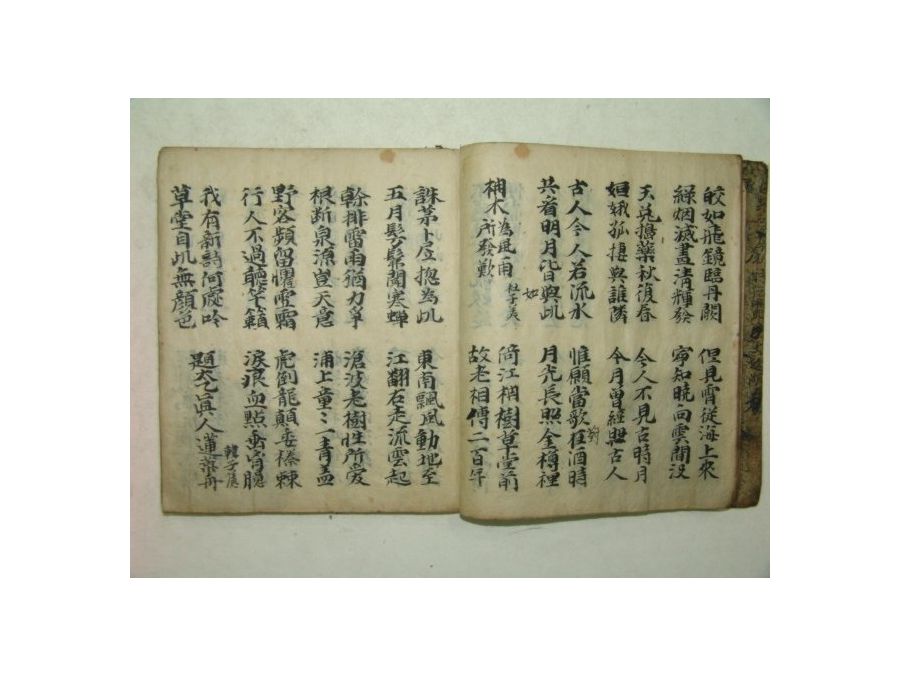 皎如飛鏡臨丹闕 但見霄從海上來
緑烟滅盡清輝發 寧知曉向雲間沒
天兎搗藥秋復春 今人不見古時月
姮娥孤捿與誰隣 今月曾經照古人
古人今人若流水 惟願當歌狂酒時
對
共看明月皆與此 月光長照金樽裡
如
楠木為風雨所發歎 杜子美
倚江楠樹草堂前
故老相傳二百年
誅茅卜居摠為此 東南飄風動地至
五月髣髴聞寒蟬 江翻石走流雲起
幹排雷雨猶力爭 滄波老樹性所愛
根斷泉源豈天意 浦上童〻一青盖
野客頻留懼雪霜 虎倒龍顛委榛棘
行人不過聽竽籟 淚痕血點垂胷臆
我有新詩何處吟
草堂自此無顔色
題太乙眞人蓮葉舟 韓子蒼